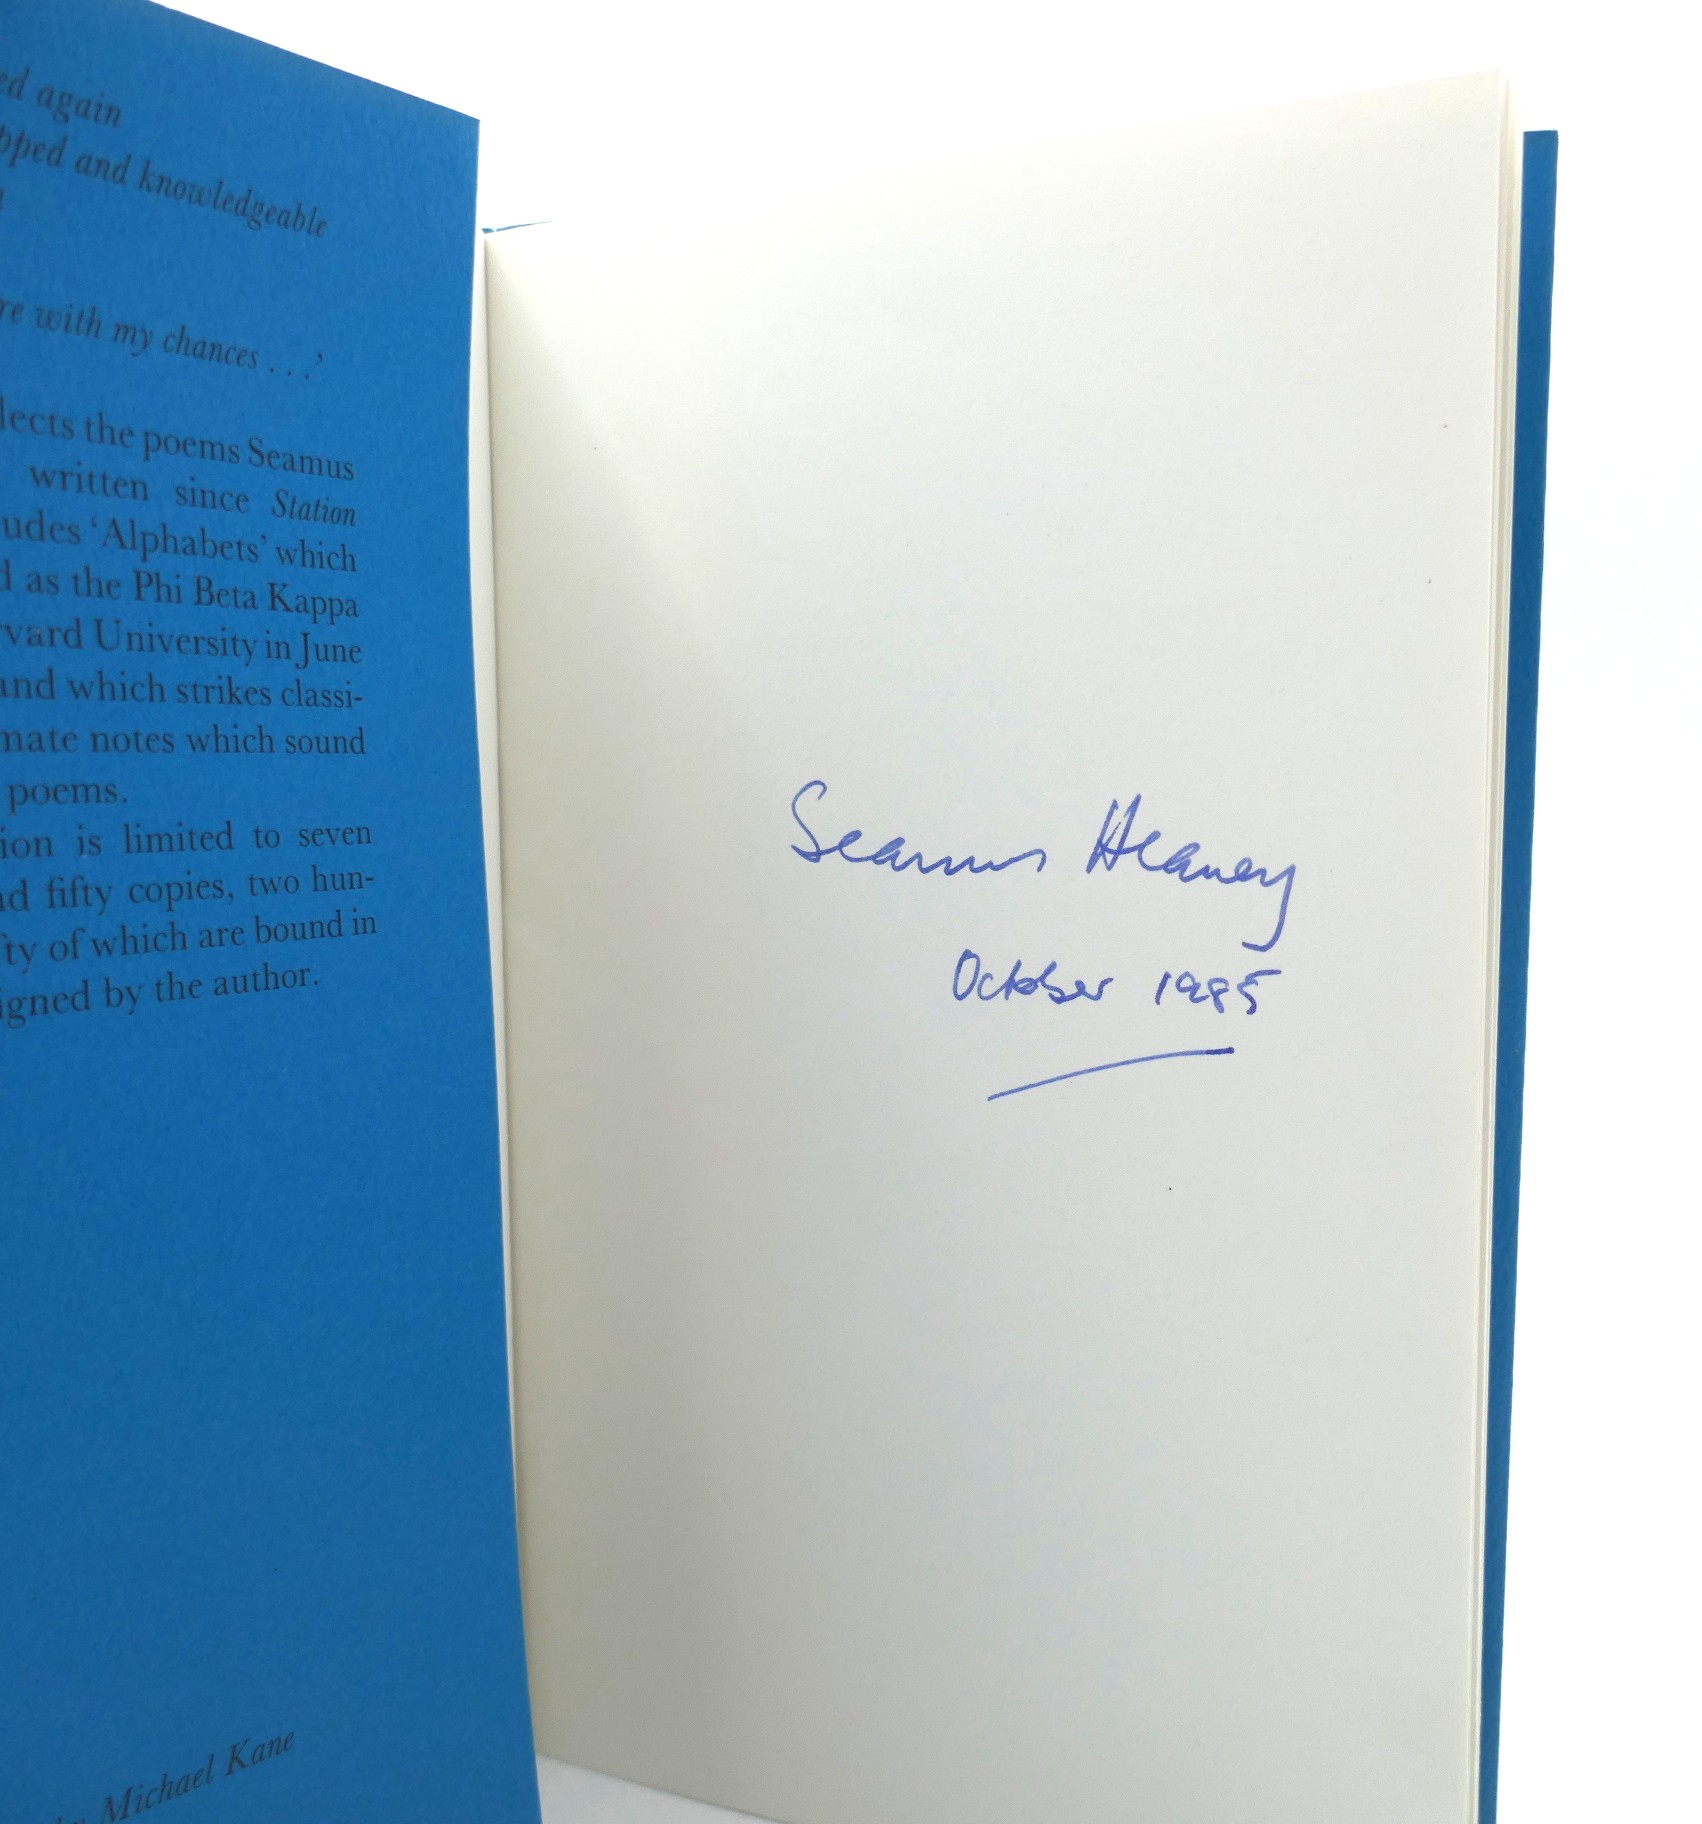 again
and knowledgeable
with my chances . . .’
the poems Seamus
written since Station
‘Alphabets’ which
as the Phi Beta Kappa
University in June
and which strikes classi-
notes which sound
poems.
is limited to seven
fifty copies, two hun-
of which are bound in
by the author.
Michael Kane
Seamus Heaney
October 1985